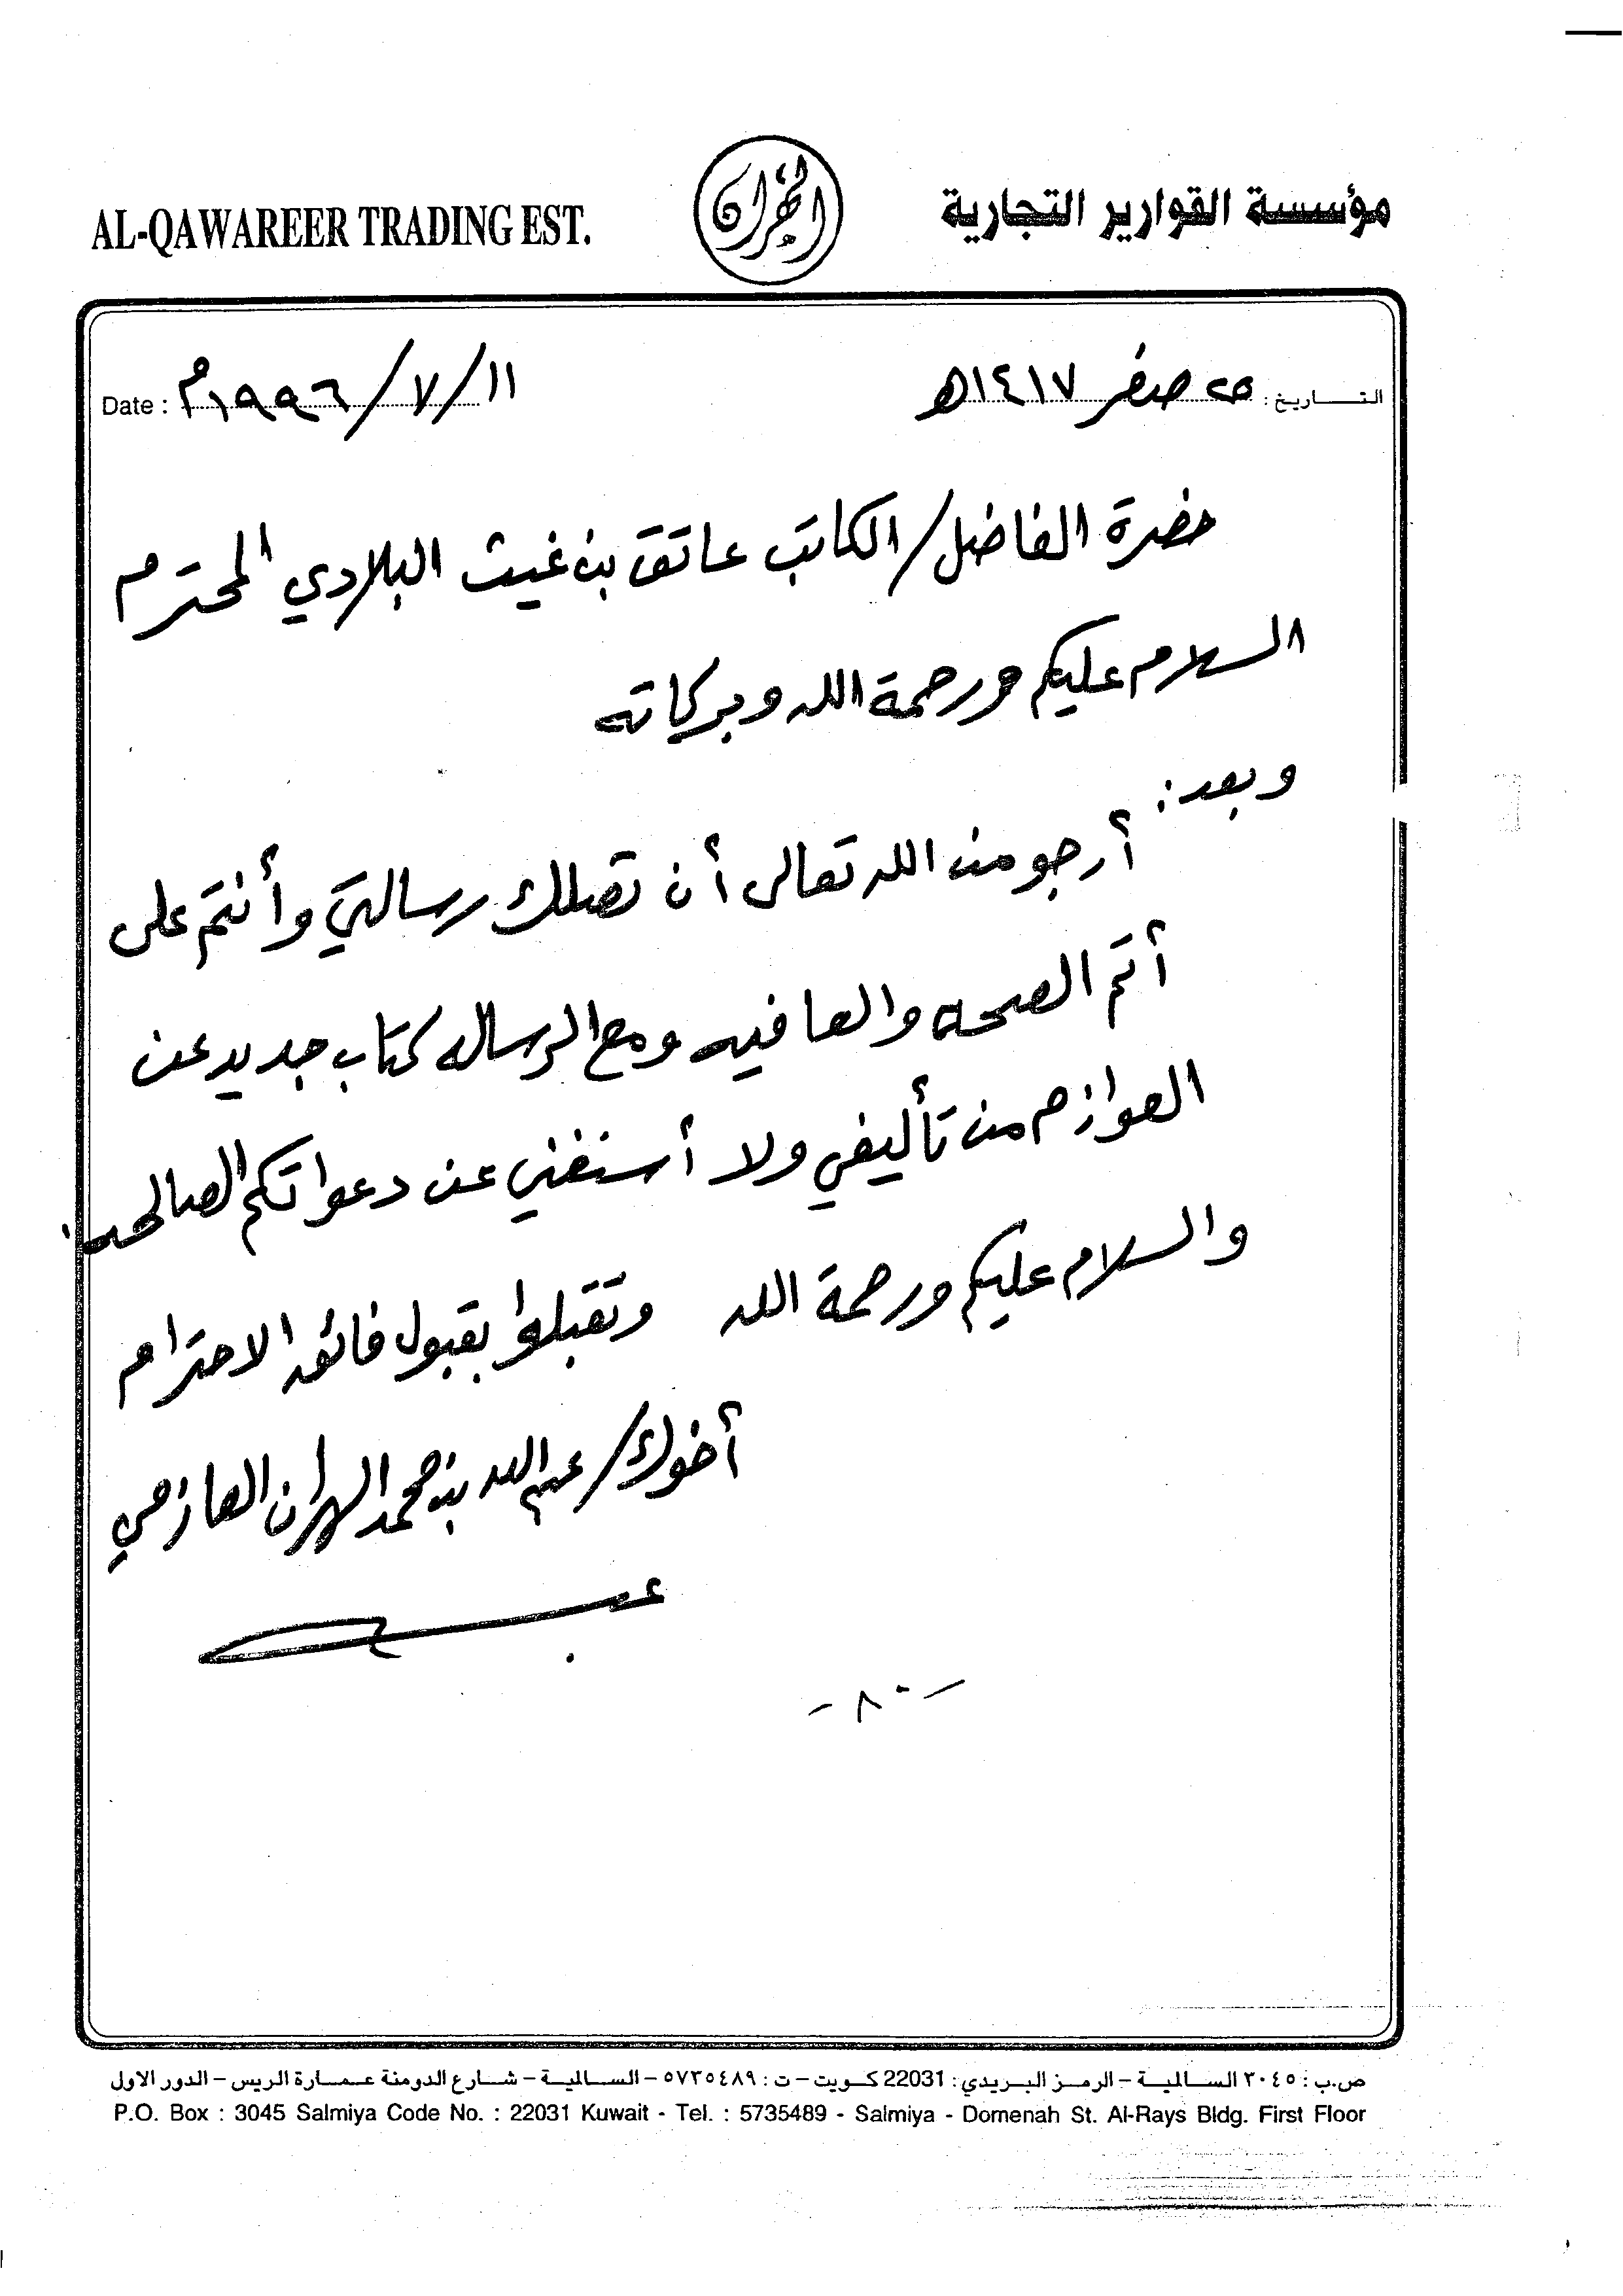 مؤسسة القوارير التجارية
AL-QAWAREER TRADING EST.
التاريخ: ٢٥ صفر ١٤١٧هـ
Date : ١١/٧/١٩٩٦م
حضرة الفاضل/الكاتب عاتق بن غيث البلادي المحترم
السلام عليكم ورحمة الله وبركاته
وبعد:
أرجو من الله تعالى أن تصلك رسالتي وأنتم على
أتم الصحه والعافيه ومع الرساله كتاب جديد عن
العوازم من تأليفي ولا أستغني عن دعواتكم الصالحه.
والسلام عليكم ورحمة الله وتقبلوا بقبول فائق الاحترام
أخوك/عبدالله بن محمد الهران العازمي
-٨٠-
ص.ب: ٣٠٤٥ السالمية - الرمز البريدي: 22031 كويت - ت: ٥٧٣٥٤٨٩ - السالمية - شارع الدومنة عمارة الريس - الدور الاول
P.O. Box : 3045 Salmiya Code No. : 22031 Kuwait - Tel. : 5735489 - Salmiya - Domenah St. Al-Rays Bldg. First Floor